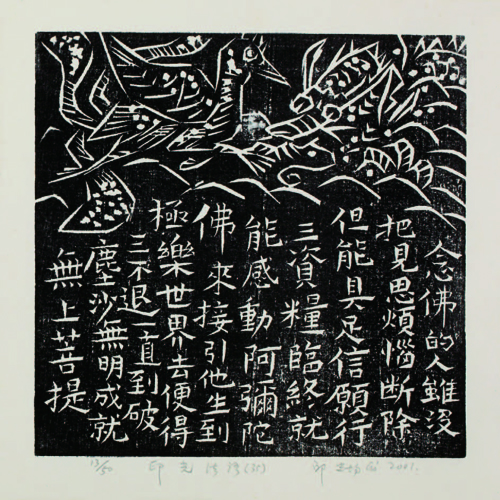 念佛的人雖沒
把見思煩惱斷除
但能具足信願行
三資糧臨終就
能感動阿彌陀
佛來接引他生到
極樂世界去便得
三不退一直到破
塵沙無明成就
無上菩提
印光
2001.